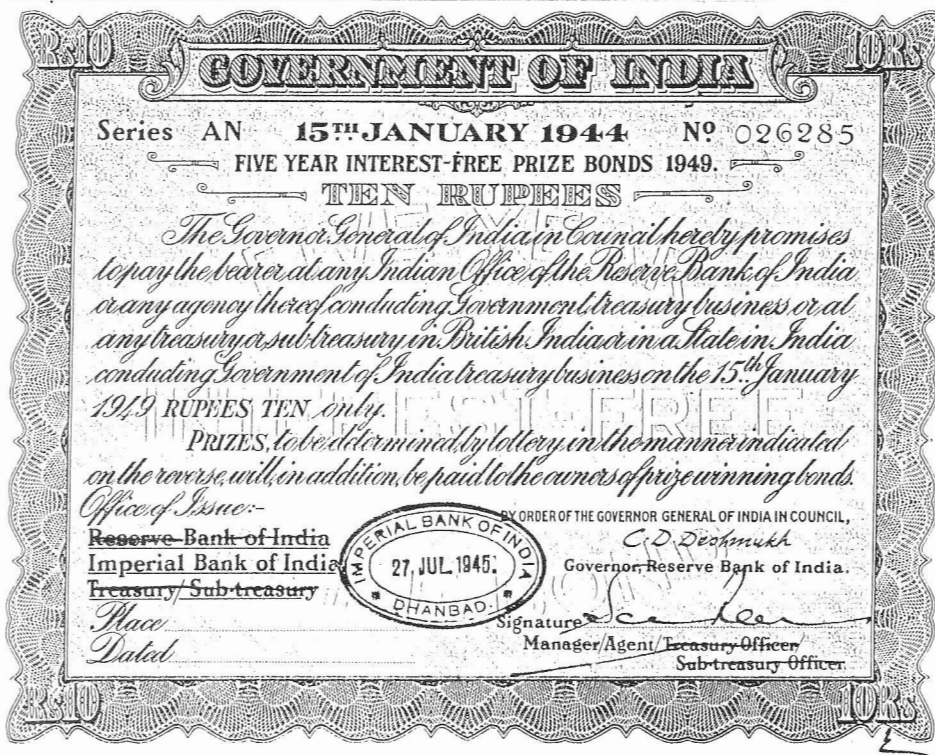 Rs10 10Rs
GOVERNMENT OF INDIA
Series AN 15TH JANUARY 1944 No 026285
FIVE YEAR INTEREST-FREE PRIZE BONDS 1949.
TEN RUPEES
The Governor General of India in Council hereby promises
to pay the bearer at any Indian Office of the Reserve Bank of India
or any agency thereof conducting Government treasury business or at
any treasury or sub-treasury in British India or in a State in India
conducting Government of India treasury business on the 15th January
1949 RUPEES TEN only.
INTEREST-FREE
PRIZES, to be determined by lottery in the manner indicated
on the reverse, will, in addition, be paid to the owners of prize winning bonds.
Office of Issue:-
Reserve Bank of India
Imperial Bank of India
Treasury/Sub-treasury
Place
Dated
IMPERIAL BANK OF INDIA
27, JUL. 1945.
DHANBAD.
BY ORDER OF THE GOVERNOR GENERAL OF INDIA IN COUNCIL,
C. D. Deshmukh
Governor, Reserve Bank of India.
Signature
Manager/Agent/Treasury Officer/
Sub-treasury Officer.
Rs10 10Rs